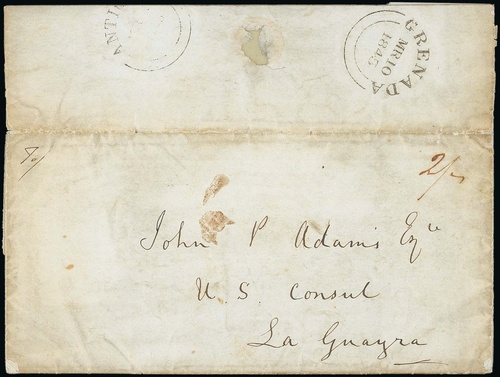 ANTI
GRENADA
MR10
1845
2/-
John P Adams Esqre
U. S. Consul
La Guayra